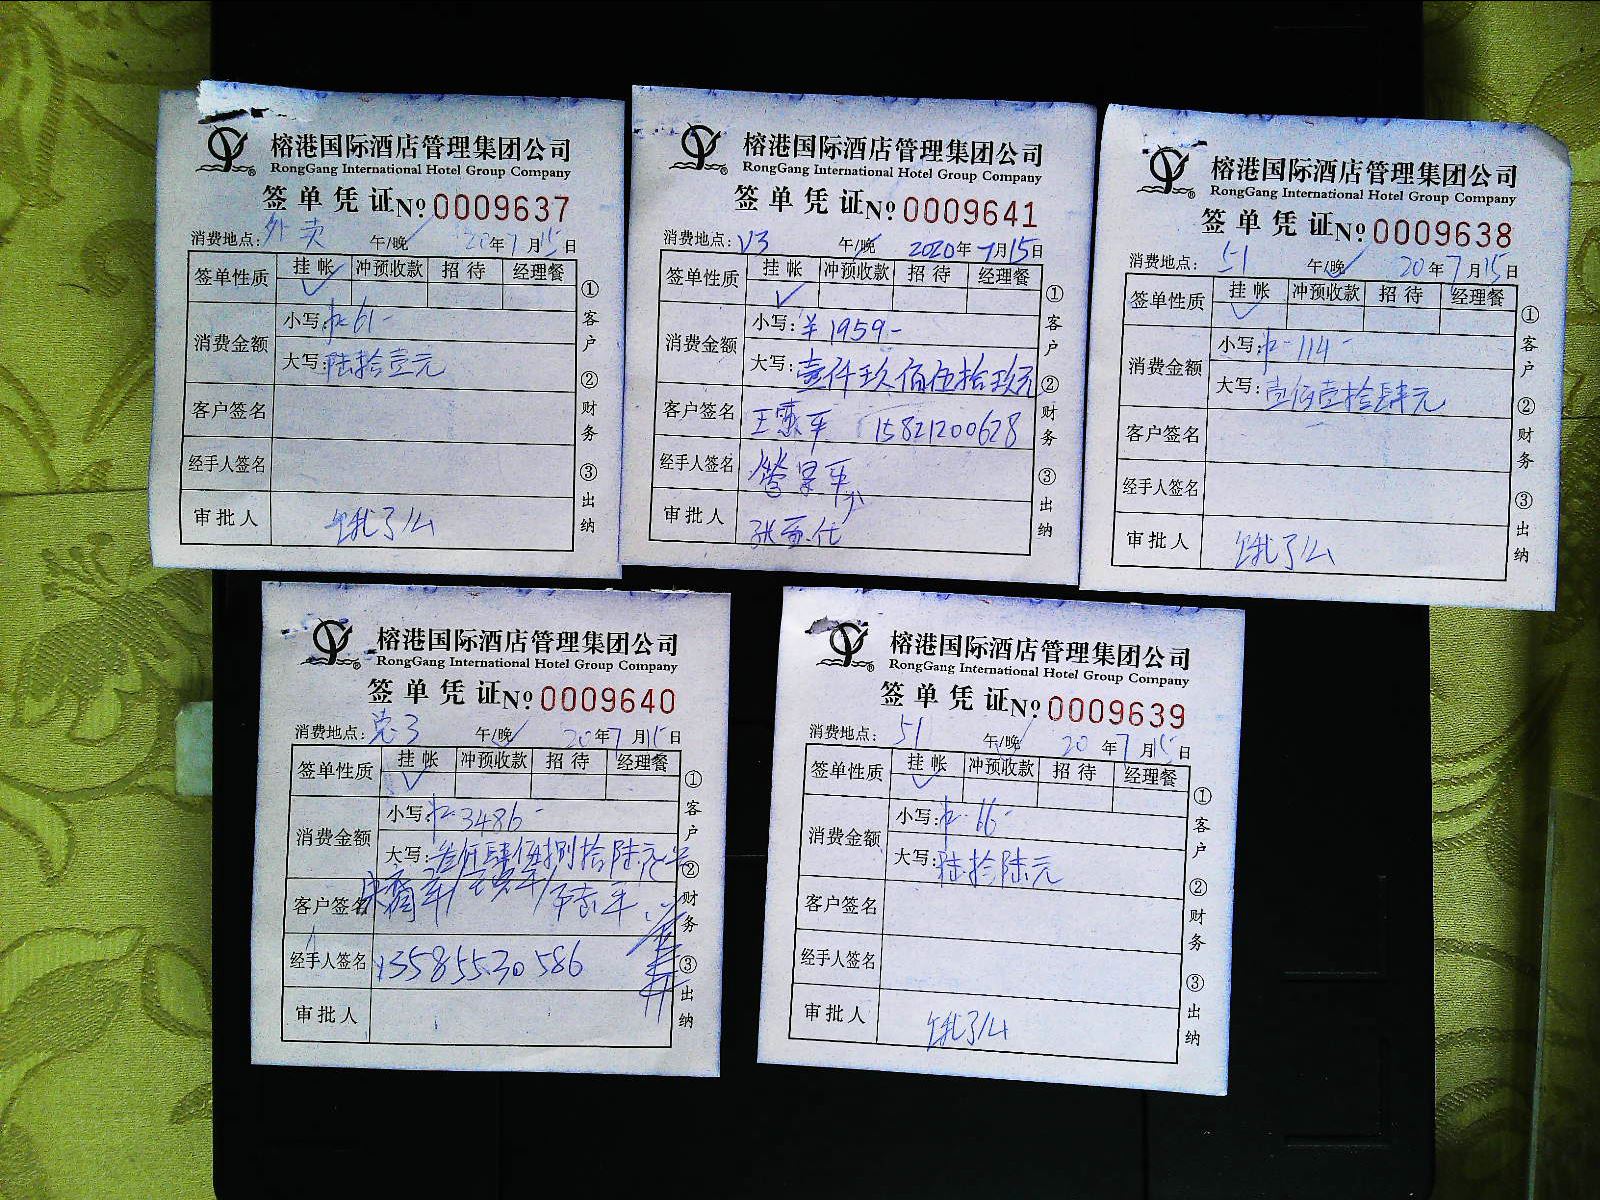 榕港国际酒店管理集团公司
RongGang International Hotel Group Company
签单凭证 No 0009637
消费地点: 外卖 午/晚 20年7月15日
签单性质 挂帐 冲预收款 招待 经理餐
消费金额 小写: 61-
大写: 陆拾壹元
客户签名
经手人签名
审批人 饿了么
①客户 ②财务 ③出纳
榕港国际酒店管理集团公司
RongGang International Hotel Group Company
签单凭证 No 0009641
消费地点: V3 午/晚 2020年7月15日
签单性质 挂帐 冲预收款 招待 经理餐
消费金额 小写: ¥1959-
大写: 壹仟玖佰伍拾玖元
客户签名 王 平 15821200628
经手人签名
审批人 张
①客户 ②财务 ③出纳
榕港国际酒店管理集团公司
RongGang International Hotel Group Company
签单凭证 No 0009638
消费地点: 51 午/晚 20年7月15日
签单性质 挂帐 冲预收款 招待 经理餐
消费金额 小写: 114-
大写: 壹佰壹拾肆元
客户签名
经手人签名
审批人 饿了么
①客户 ②财务 ③出纳
榕港国际酒店管理集团公司
RongGang International Hotel Group Company
签单凭证 No 0009640
消费地点: 3 午/晚 20年7月15日
签单性质 挂帐 冲预收款 招待 经理餐
消费金额 小写: 3486-
大写: 叁仟肆佰捌拾陆元
客户签名
经手人签名 13585530586
审批人
①客户 ②财务 ③出纳
榕港国际酒店管理集团公司
RongGang International Hotel Group Company
签单凭证 No 0009639
消费地点: 51 午/晚 20年7月15日
签单性质 挂帐 冲预收款 招待 经理餐
消费金额 小写: 66-
大写: 陆拾陆元
客户签名
经手人签名
审批人 饿了么
①客户 ②财务 ③出纳